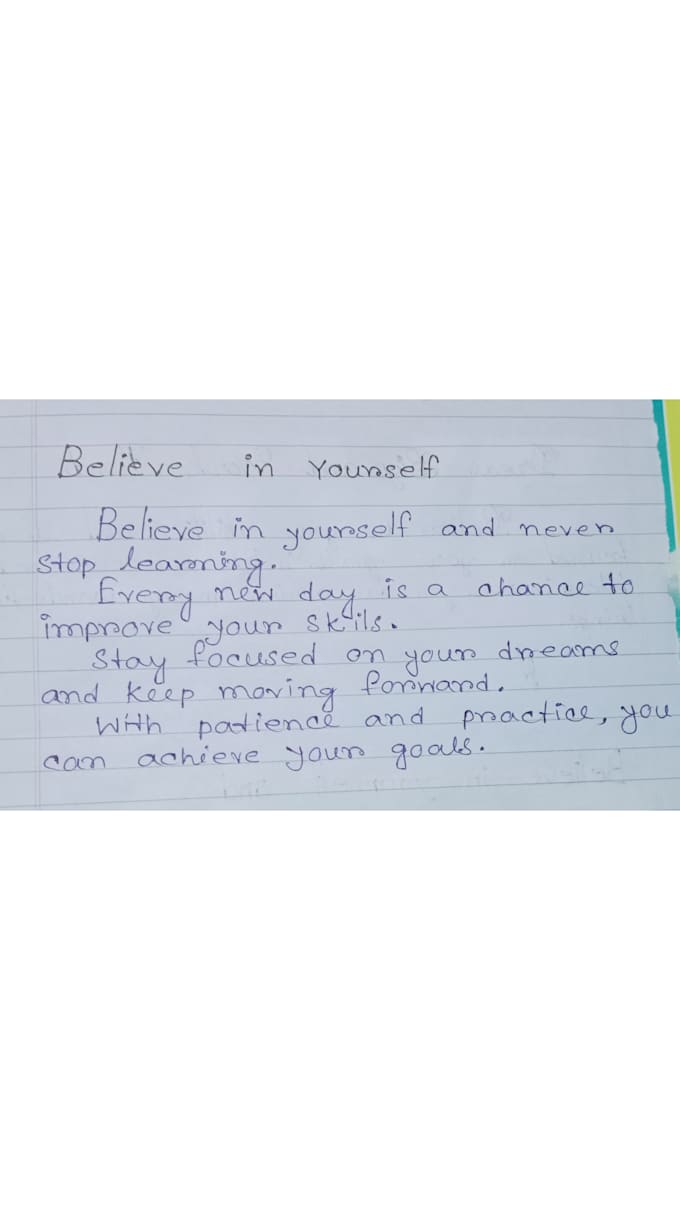 Believe in Yourself
Believe in yourself and never
stop learning.
Every new day is a chance to
improve your skils.
Stay focused on your dreams
and keep moving forward.
With patience and practice, you
can achieve your goals.